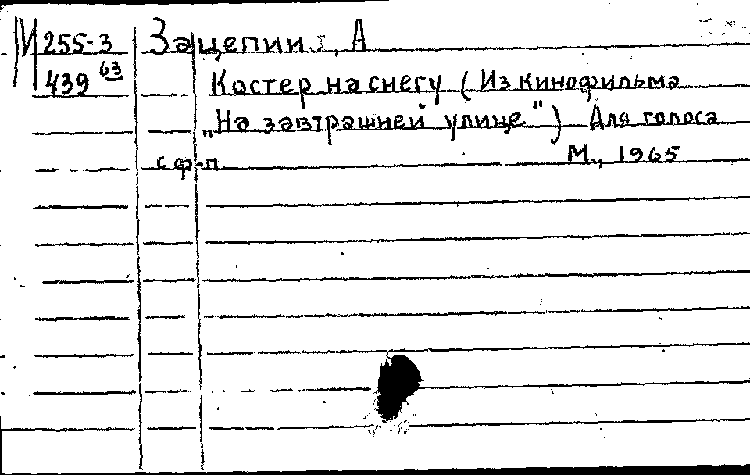 М 255-3 Зацепин, А
439 63 Костер на снегу (Из кинофильма
„На завтрашней улице") Для голоса
с ф-п. М., 1965